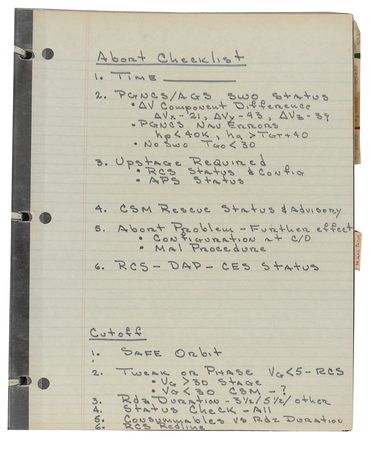 Abort Checklist
1. TIME ________
2. PGNCS/AGS SWO STATUS
• ΔV Component Difference
ΔVx-21, ΔVy-93, ΔVz-39
• PGNCS NAV ERRORS
hp<40K, ha>TGT+40
• No SWO TGO<30
3. Upstage Required
• RCS Status & Config
• APS Status
4. CSM Rescue Status & Advisory
5. Abort Problem - Further effect
• Configuration at C/O
• Mal Procedure
6. RCS - DAP - CES Status
Cutoff
1. SAFE Orbit
2. Tweak or Phase VG<5-RCS
• VG>30 Stage
• VG<30 CSM-?
3. Rdz Duration - 3½/5½/other
4. Status Check - All
5. Consummables vs Rdz Duration
6. RCS Redline